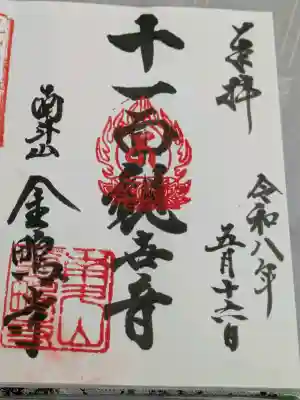 奉拝
令和八年
五月十六日
十一面観世音
南斗山
金鵬寺